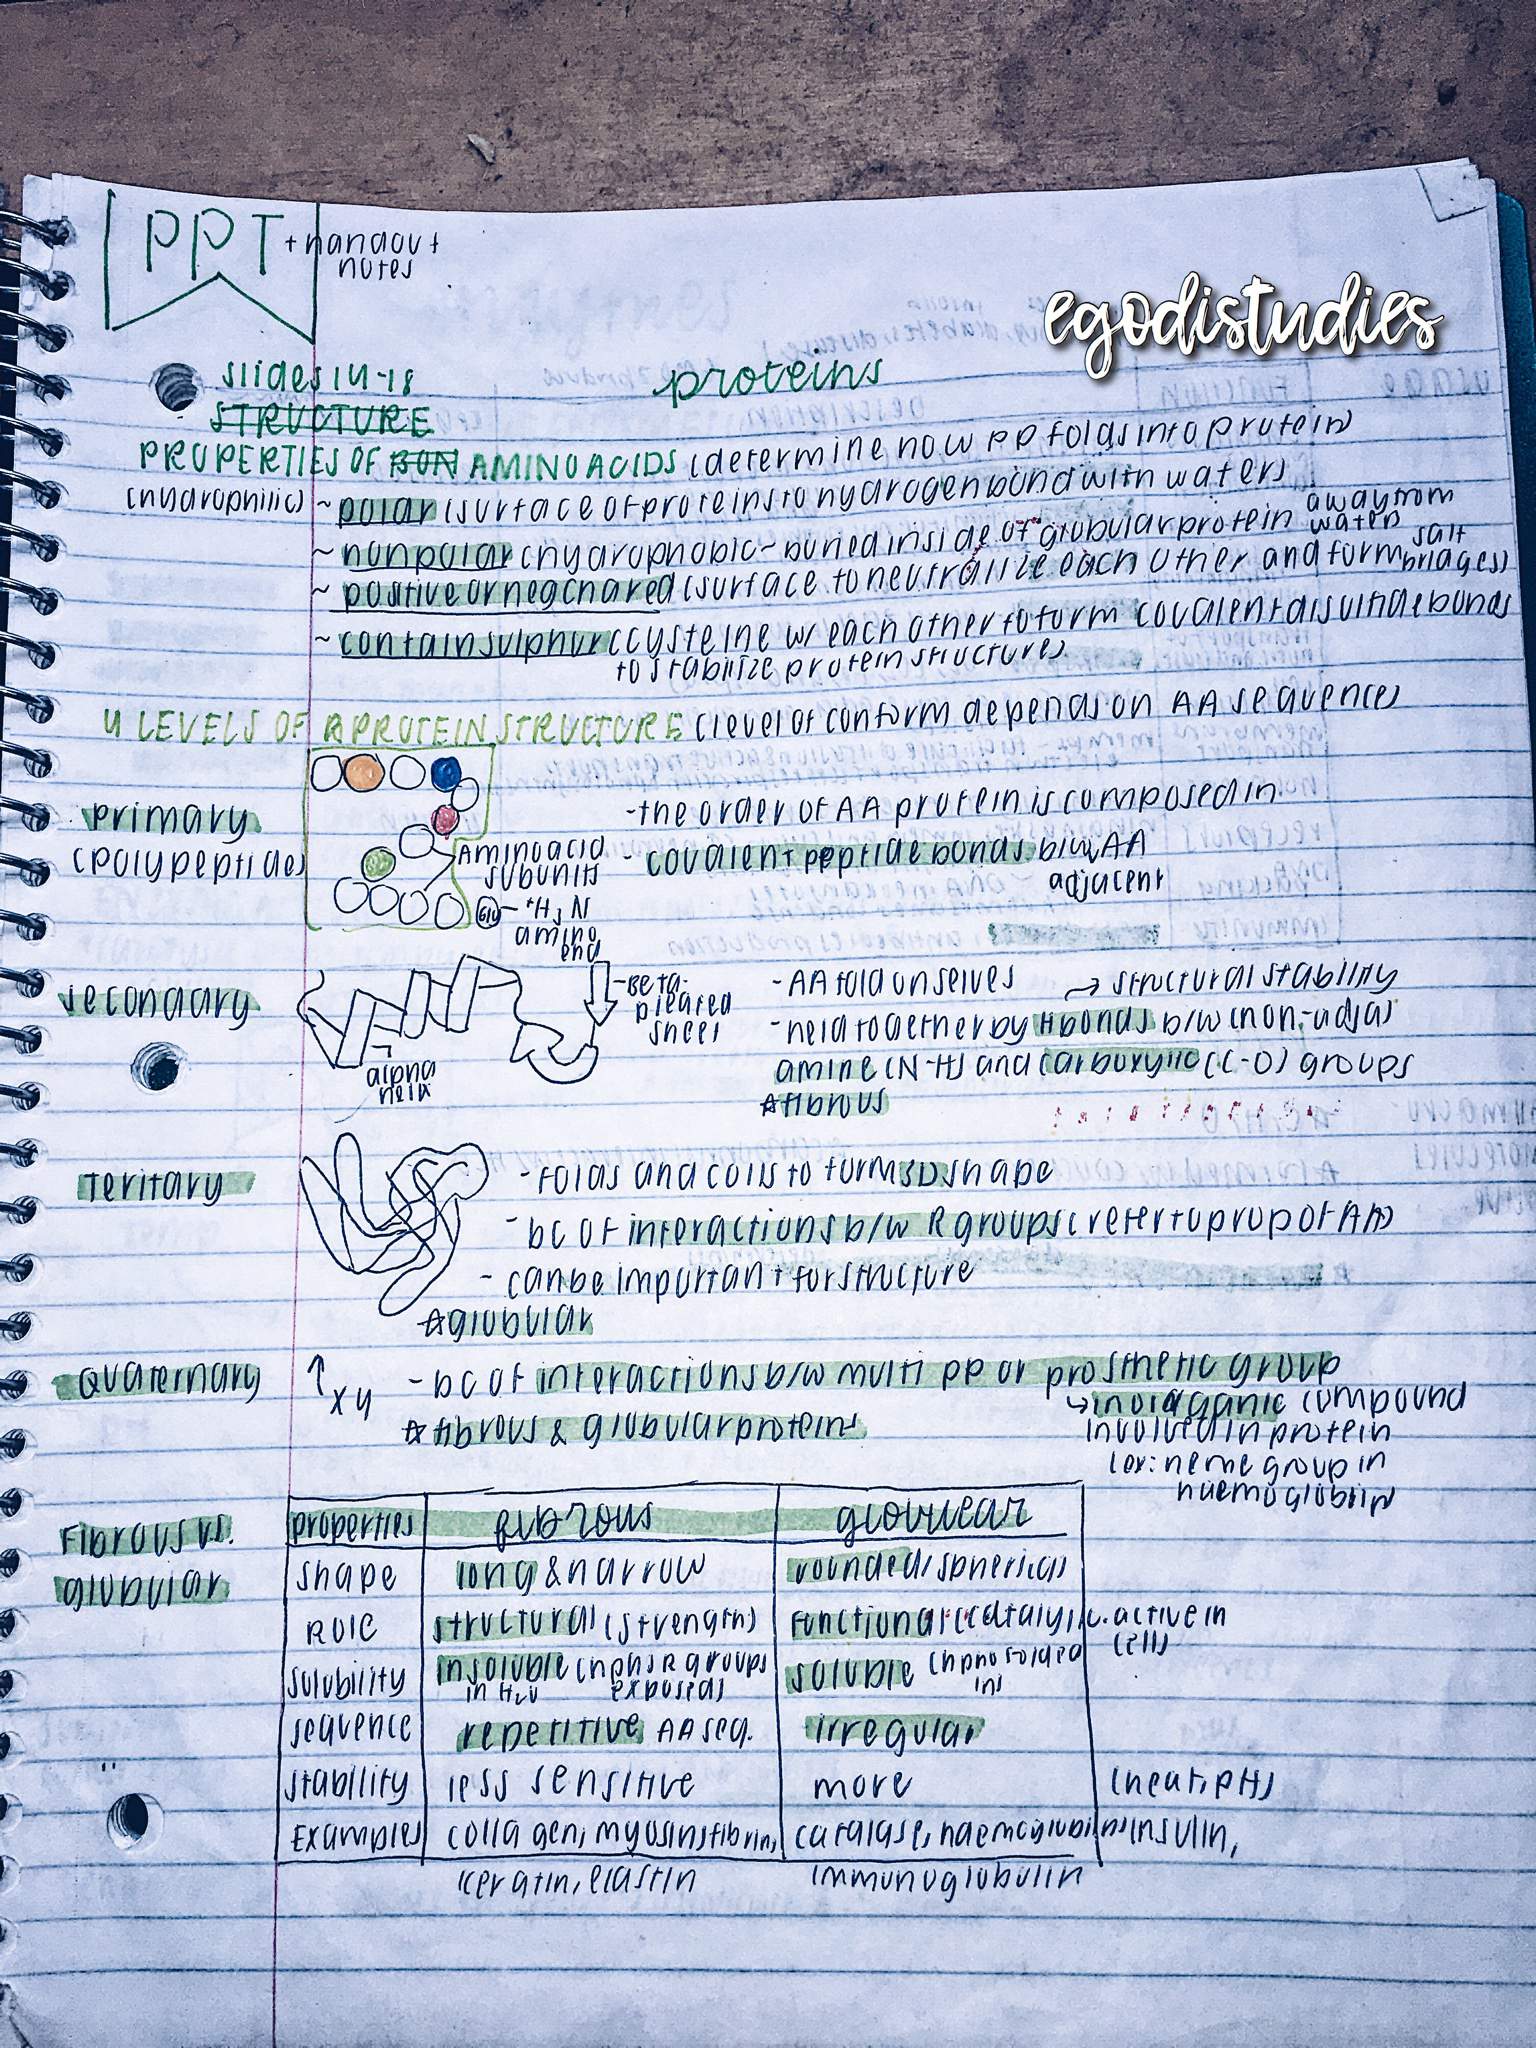 PPT + handout
notes
egodistudies
slides 14-18
proteins
STRUCTURE
PROPERTIES OF AMINO ACIDS (determine how PP folds into protein)
(hydrophilic) ~ polar (surface of proteins to hydrogen bond with water)
~ nonpolar (hydrophobic ~ buried inside of globular protein away from
water
~ positive or neg chared (surface to neutralize each other and form salt
bridges)
~ contain sulphur (cysteine w/ each other to form covalent disulfide bonds
to stabilize protein structure)
4 LEVELS OF PROTEIN STRUCTURE (level of conform depends on AA sequence)
primary
(polypeptide)
Amino acid
subunits
+H3N
amino
end
- the order of AA protein is composed in
- covalent peptide bonds b/w AA
adjacent
secondary
alpha
helix
- Beta-
pleated
sheet
- AA fold on selves → structural stability
- held together by H bonds b/w (non-adja)
amine (N-H) and carboxylic (C-O) groups
☆ fibrous
Teritary
- folds and coils to form 3D shape
- bc of interactions b/w R groups (refer to prop of AA)
- can be important for structure
☆ globular
Quaternary
↑ x4
- bc of interactions b/w multi pp or prosthetic group
↳ inorganic compound
involved in protein
(ex: heme group in
haemoglobin)
☆ fibrous & globular proteins
Fibrous vs.
globular
properties fibrous globular
shape long & narrow rounded/spherical
Role structural (strength) functional (catalytic. active in
cell)
solubility insoluble (hphb R groups soluble (hpho folded
in H2O exposed) in)
sequence repetitive AA seq. irregular
stability less sensitive more (heat, pH)
Examples collagen, myosin, fibrin, catalase, haemoglobin, insulin,
keratin, elastin immunoglobulin